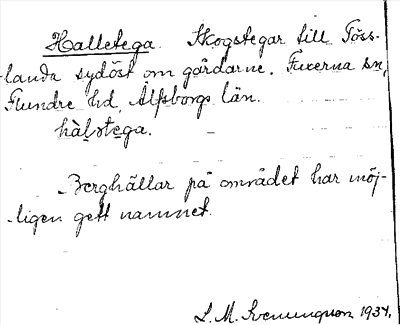 Halletega. Skogstegar till Töss-
landa sydöst om gårdarne. Fuxerna sn,
Flundre hd, Älfsborgs län.
hàḷstega.
Berghällar på området har möj-
ligen gett namnet.
L. M. Svenungsson 1934.